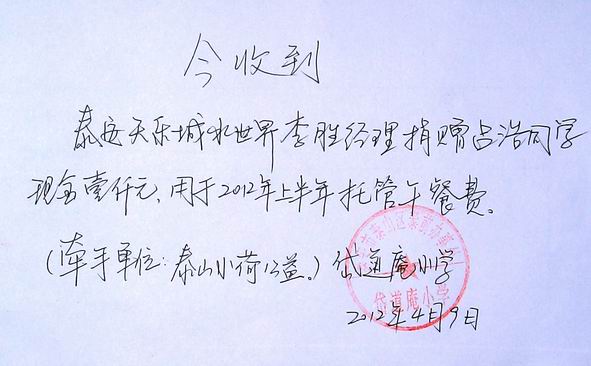 今收到
泰安天乐城水世界李胜经理捐赠占浩同学
现金壹仟元，用于2012年上半年托管午餐费。
（牵手单位：泰山小荷公益。）岱道庵小学
岱道庵小学
2012年4月9日